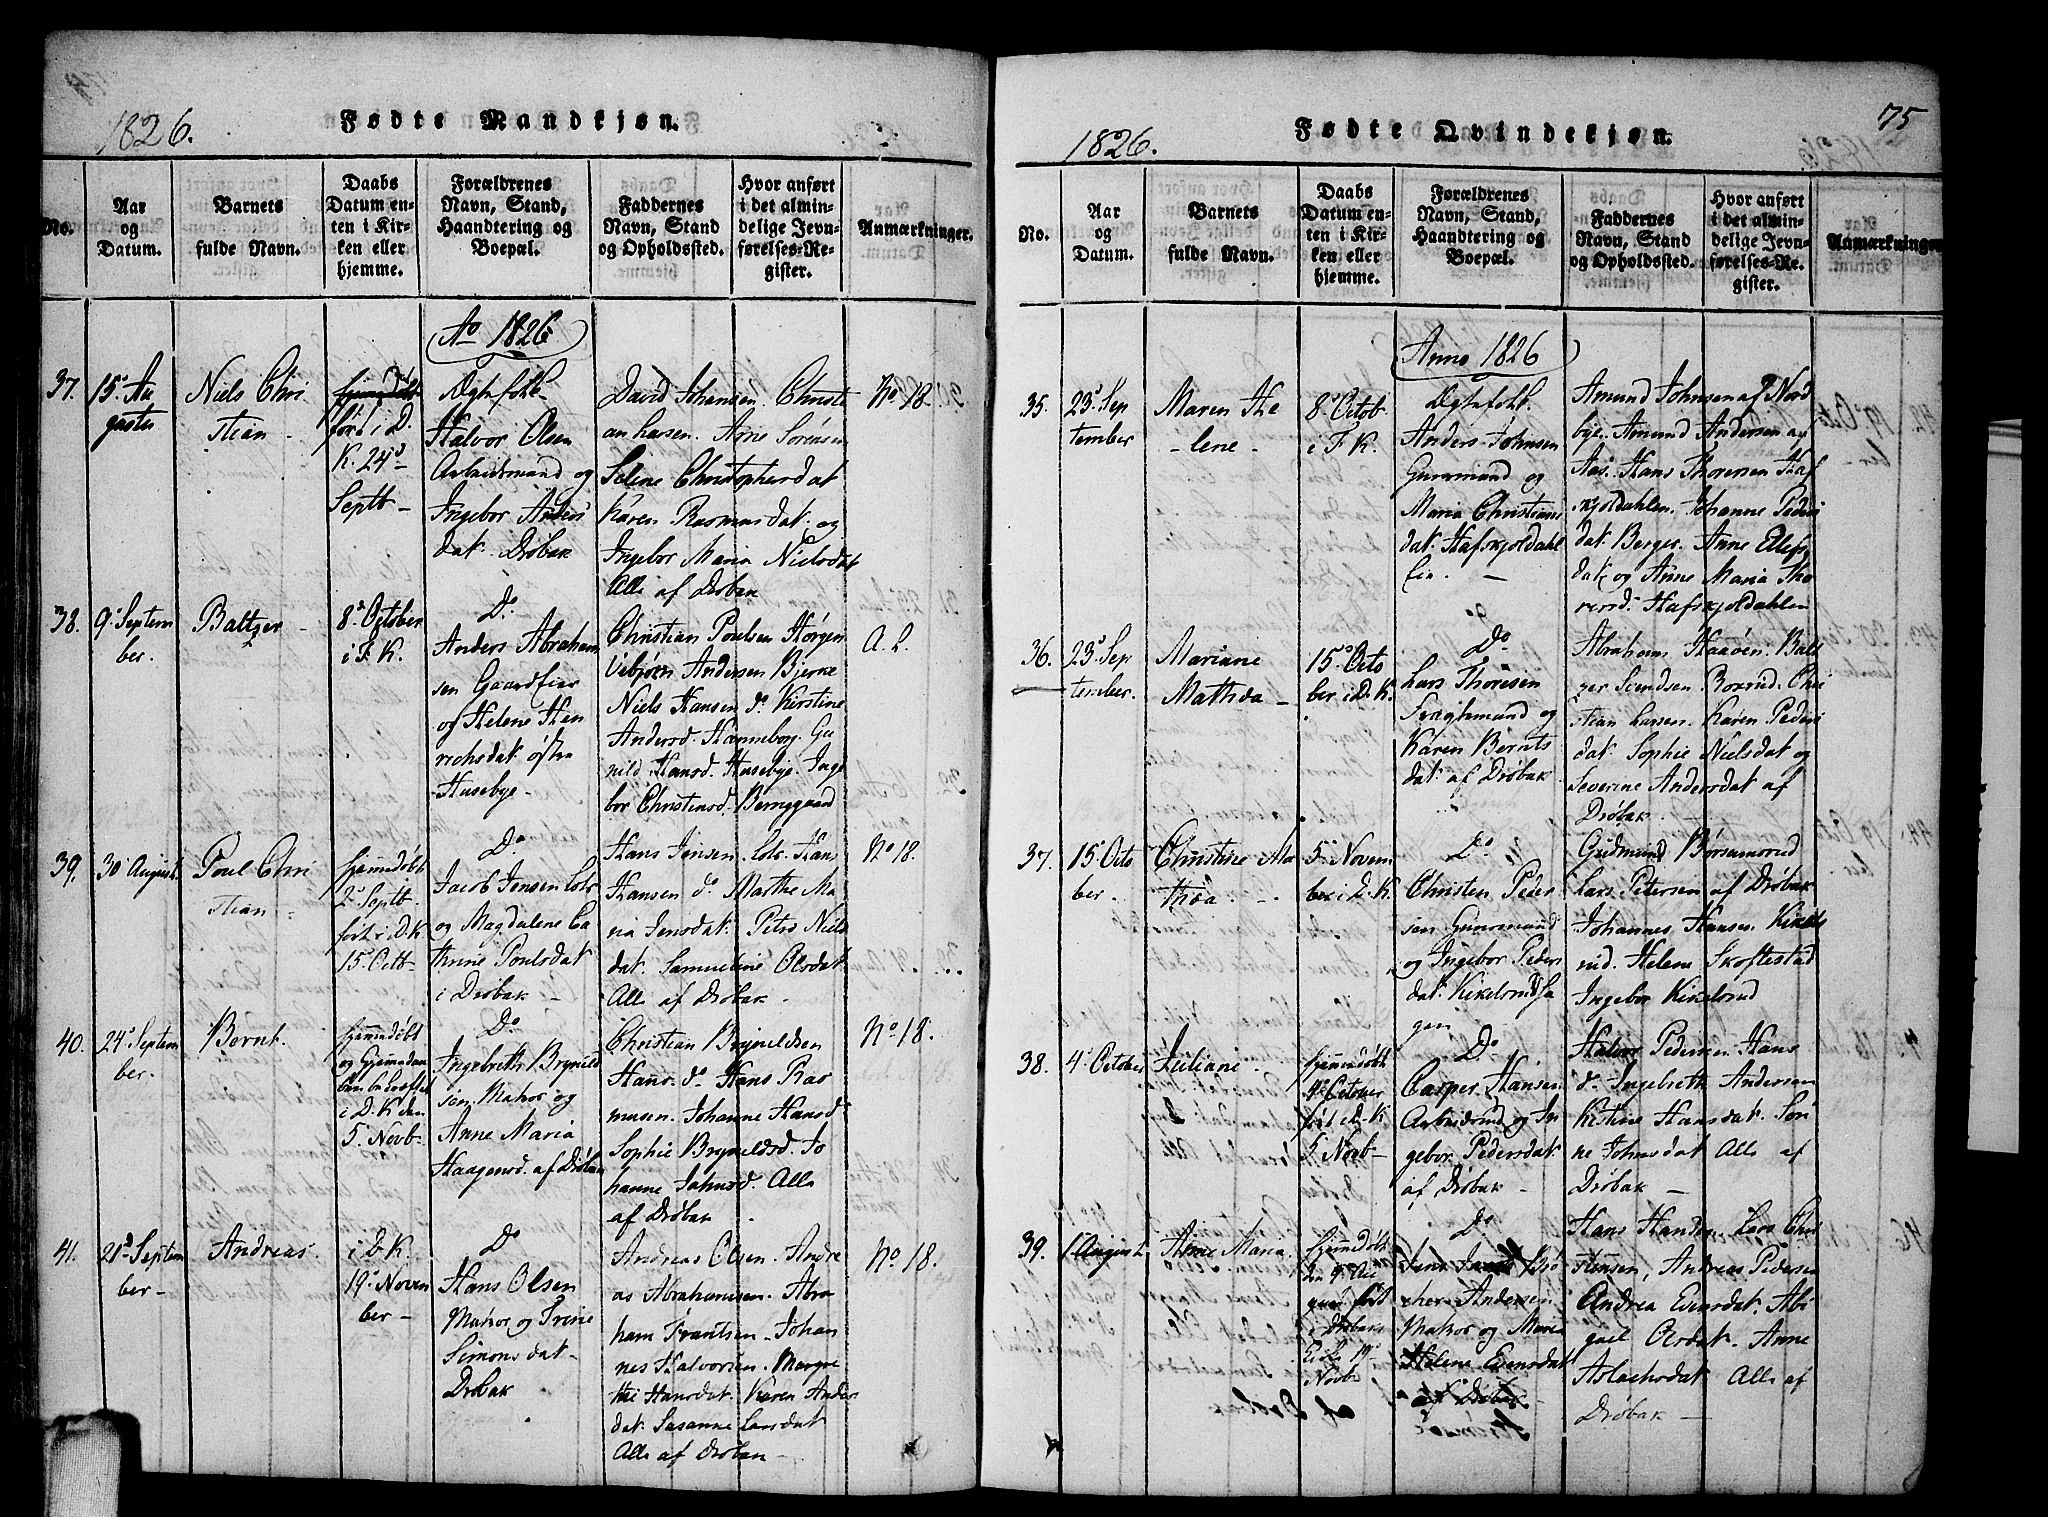 1826.
Fødte Mandkjøn.
No.
Aar
og
Datum.
Barnets
fulde Navn.
Daabs
Datum en-
ten i Kir-
ken eller
hjemme.
Forældrenes
Navn, Stand,
Haandtering og
Boepæl.
Faddernes
Navn, Stand
og Opholdssted.
Hvor anført
i det almin-
delige Jevn-
førelses-Re-
gister.
Anmærkninger.
Ao 1826
37.
15 Au
gustus
Niels Chri
stian
ført i D.
K. 24
Septb
Ægtefolk
Halvor Olsen
Arbeidsmand og
Ingebor Anders
dat. Drøbak
David Johansen. Christi
an Larsen. Arne Sørensen
Selene Christophersdat
Karen Rasmusdat og
Ingebor Maria Nielsdat
Alle af Drøbak
No 18.
38.
9 Septem
ber.
Baltzer
8 October
i F. K.
Do
Anders Abraham
sen Gaardeier
og Helene Hen
richsdat østre
Husebye.
Christian Poulsen Hørgen
Vebjørn Andersen Bjerke
Niels Hansen do Kirstine
Andersd. Hanneborg. Gu
nild Hansd. Husebye. Inge
bor Christensd. Berggaard
A. L.
39.
30 August.
Poul Chri
stian
hjemmedøbt
2 Septb.
ført i D. K.
15 Octb
Do
Jacob Jensen Lots
og Magdalene Ca
thrine Poulsdat
i Drøbak
Hans Jensen Lots. Hans
Hansen do Marthe Ma
ria Jensdat. Petro Niels
dat. Samueline Olsdat.
Alle af Drøbak
No 18.
40.
24 Septem
ber.
Bernt.
hjemmedøbt
og Hjemmedaa
ben bekræftet
i D. K den
5 Novb
Do
Ingebreth Brynild
sen Matros og
Anne Maria
Haagensd. af Drøbak
Christian Brynildsen
Hans do Hans Ras
musen. Johanne Hansd
Sophie Brynildsd. Jo
hanne Johnsd. Alle
af Drøbak
No 18.
41.
21 Septem
ber
Andreas.
i D K.
19 Novem
ber
Do
Hans Olsen
Matros og Trine
Simonsdat
Drøbak
Andreas Olsen. Andre
as Abrahamsen. Abra
ham Frantsen. Johan
nes Halvorsen. Margre
the Hansdat. Karen Anders
dat. Susanne Larsdat
Alle af Drøbak
No 18.
1826.
Fødte Qvindekjøn.
75
No.
Aar
og
Datum.
Barnets
fulde Navn.
Daabs
Datum en-
ten i Kir-
ken eller
hjemme.
Forældrenes
Navn, Stand,
Haandtering og
Boepæl.
Faddernes
Navn, Stand
og Opholdssted.
Hvor anført
i det almin-
delige Jevn-
førelses-Re-
gister.
Anmærkninger
Anno 1826
35.
23 Sep
tember
Maren He
lene
8 Octob
i F K.
Ægtefolk.
Anders Johnsen
Gaardmand og
Maria Christians
dat. Hafskjoldahl
Eie.
Amund Johnsen af Nord
bye. Amund Andersen af
Aas. Hans Thoresen Haf
skjoldahlen. Johanne Peders
dat Berger. Anne Elefs
dat og Anne Maria Tho
resd. Hafskjoldahlen
36.
23 Sep
tember.
Mariane
Mathea
15 Octo
ber i D. K.
Do
Lars Thoresen
Fragtemand og
Karen Bernts
dat af Drøbak
Abraham Haaøen. Balt
zer Svendsen Roxrud. Chri
stian Larsen. Karen Peders
dat. Sophie Nielsdat og
Severine Andersdat af
Drøbak.
37.
15 Octo
ber.
Christine Ma
thea
5 Novem
ber i D. K.
Do
Christen Peder
sen Huusmand
og Ingebor Peders
dat. Kikelsrud Ha
gen
Gudmund Børsumrud
Lars Petersen af Drøbak
Johannes Hansen Kikels
rud. Helene Skoftestad
Ingebor Kikelsrud
38.
4 October
Juliane
hjemmedøbt
9 October
ført i D. K
5 Novb
Do
Casper Hansen
Arbeidsmd og In
gebor Pedersdat
af Drøbak
Halvor Pedersen Hans
do Ingebreth Andersen
Kistine Hansdat. Sør
ine Johnsdat Alle af
Drøbak
39.
1 August
Anne Maria
hjemmedøbt
den 9 Au
gust ført
i Drøbaks
Kirke 19
Novb
Do
Andersen
Matros og Maria
Helene Evensdat
af Drøbak
Hans Hansen, Lars Chri
stensen, Andreas Pedersen
Andrea Evensdat. Abi
gael Olsdat. Anne
Aslachsdat Alle af
Drøbak